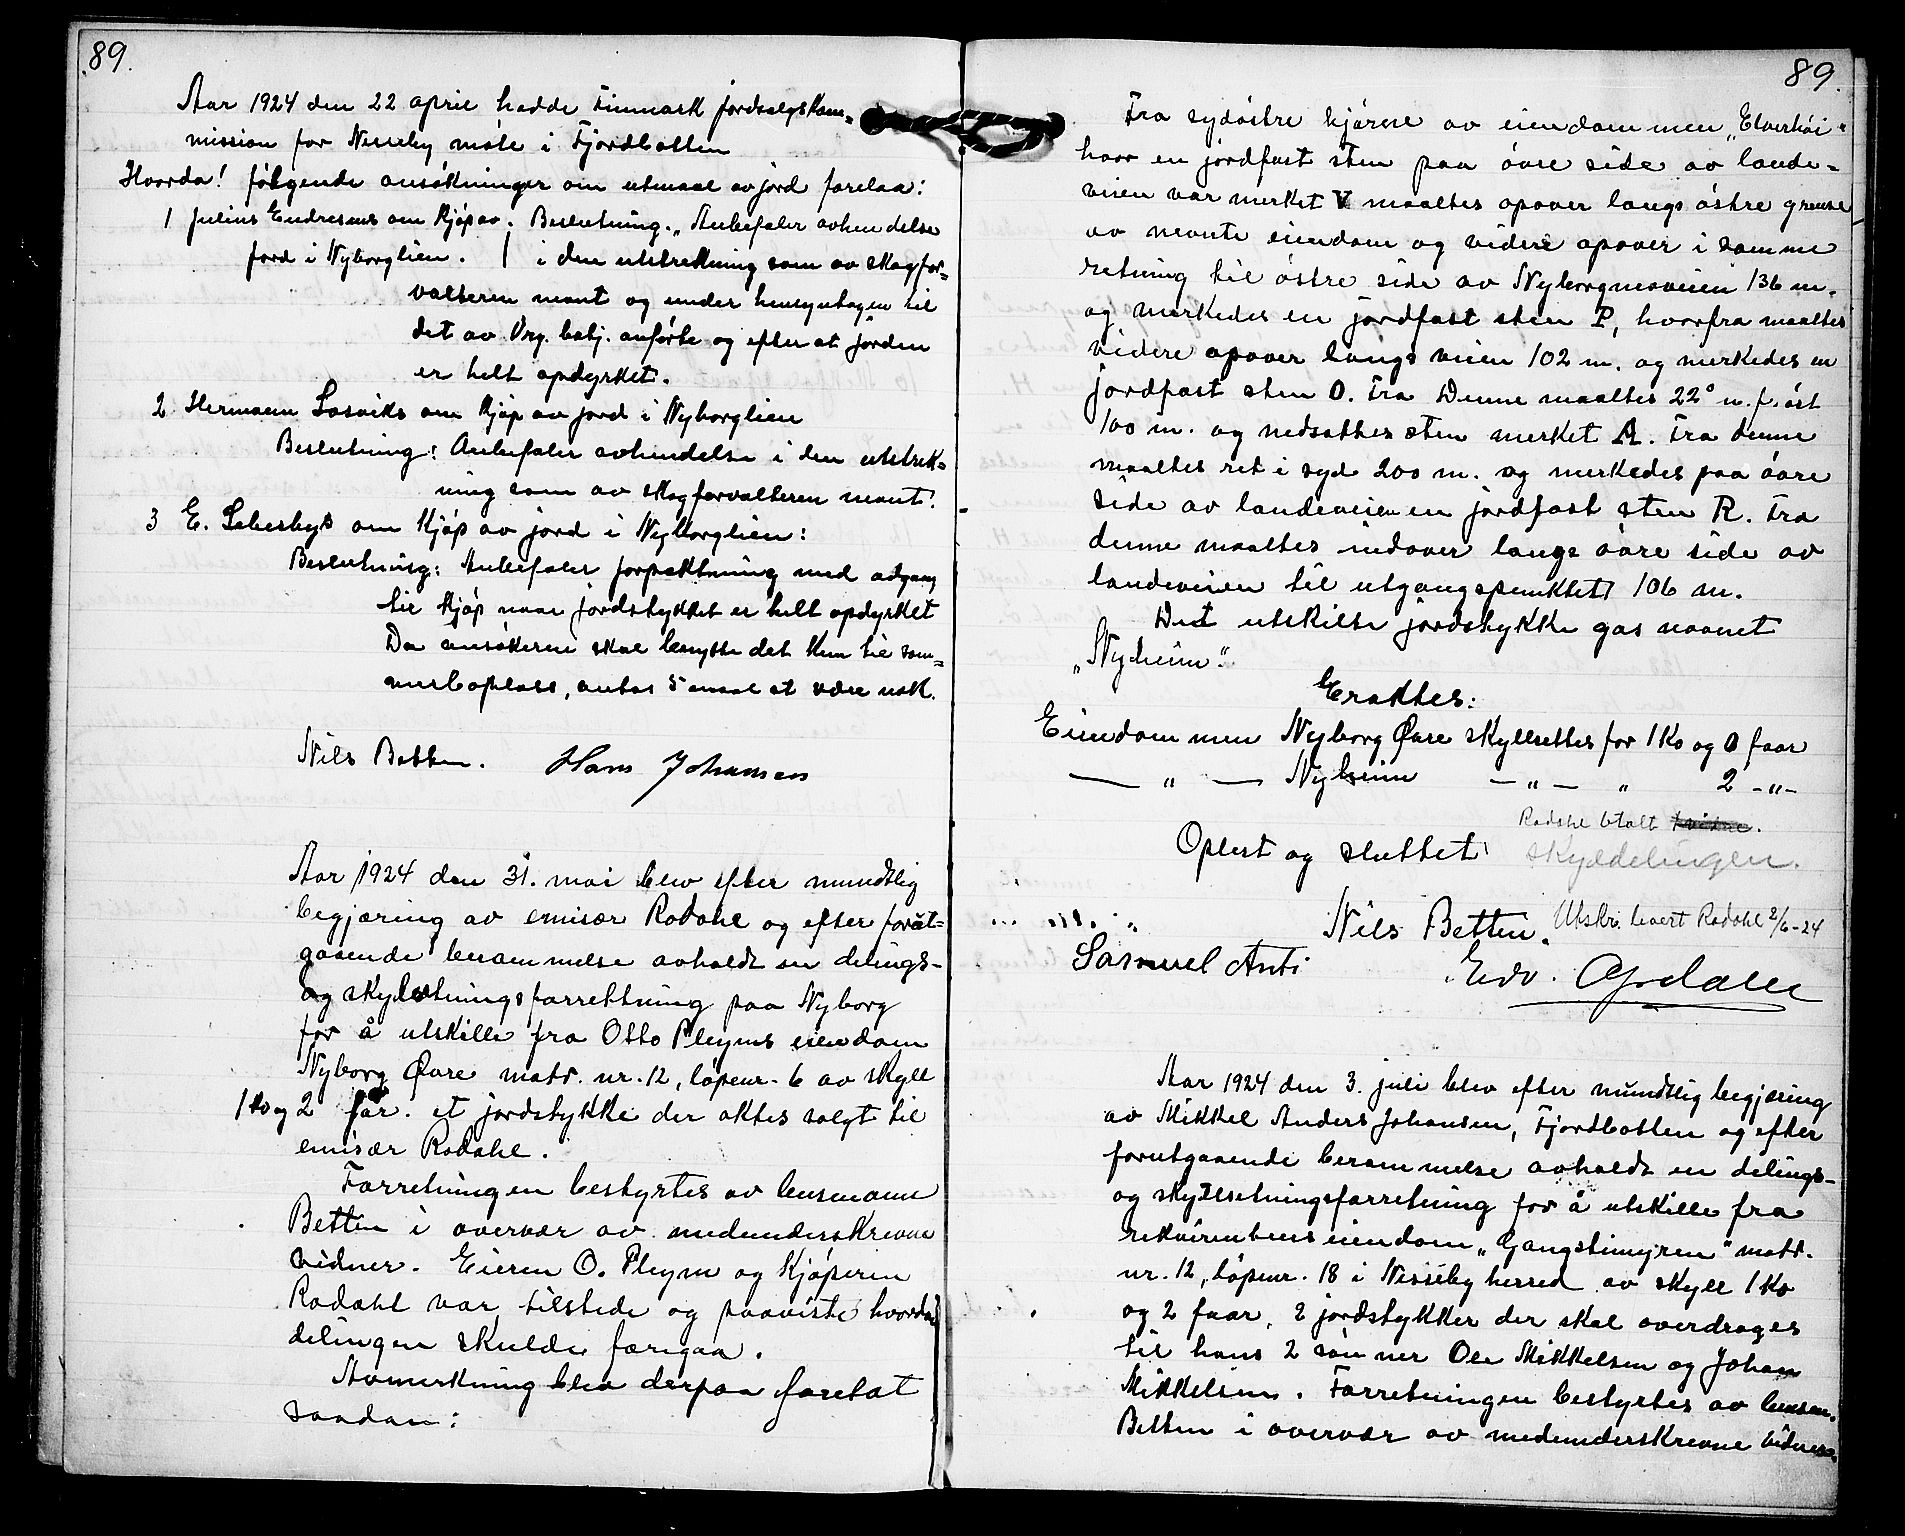 89.
Aar 1924 den 22 april hadde Finmark jordsalgskom=
mission for Nesseby møte i Fjordbotten
Hvorda! følgende ansøkninger om utmaal av jord forelaa:
1 Julius Endresens om kjøp av
jord i Nyborglien.
Beslutning. „Anbefaler avhendelse
i den utstrekning som av skogfor=
valteren nevnt og under hensyntagen til
det av Veg. bestj. anførte og efter at jorden
er helt opdyrket.
2 Hermann Losviks om kjøp av jord i Nyborglien
Beslutning: Anbefaler avhendelse i den utstrek=
ning som av skogforvalteren nevnt.
3 E. Lebesbys om kjøp av jord i Nyborglien:
Beslutning: Anbefaler forpaktning med adgang
til kjøp naar jordstykket er helt opdyrket
Da ansøkeren skal benytte det kun til som=
merboplass, antas 5 maal at være nok.
Nils Betten. Hans Johansen
Aar 1924 den 31. mai blev efter mundtlig
begjæring av emisær Rodahl og efter forut=
gaaende berammelse avholdt en delings-
og skyldsetningsforrettning paa Nyborg
for å utskille fra Otto Pleyms eiendom
Nyborg Øvre matr. nr. 12, løpenr. 6 av skyll
1 ko og 2 får. et jordstykke der aktes solgt til
emisær Rodahl.
Forretningen bestyrtes av lensmann
Betten i overvær av medunderskrevne
vidner. Eieren O. Pleym og kjøperen
Rodahl var tilstede og paaviste hvordan
delingen skulde foregaa.
Avmerkning blev derpaa foretat
saadan:
89.
Fra sydøstre hjørne av eiendommen „Elverhøi"
hvor en jordfast sten paa øvre side av lande-
veien var merket V maaltes opover langs østre grense
av nevnte eiendom og videre opover i samme
retning til østre side av Nyborgmoveien 136 m.
og merkedes en jordfast sten P, hvorfra maaltes
videre opover langs veien 102 m. og merkedes en
jordfast sten O. Fra Denne maaltes 22° n. f. øst
100 m. og nedsattes sten merket A. Fra denne
maaltes ret i syd 200 m. og merkedes paa øvre
side av landeveien en jordfast sten R. Fra
denne maaltes indover langs øvre side av
landeveien til utgangspunktet 106 m.
Det utskilte jordstykke gas navnet
„Nyheim".
Eraktes:
Eiendommen Nyborg Øvre skyllsettes for 1 ko og 0 faar
— " — Nyheim — " — " 2 -"-
Rodahl btalt
Oplest og sluttet skylddelingen.
Nils Betten. Utskr. levert Rodahl 2/6-24
Samuel Anti Edv. Opdahl
Aar 1924 den 3. juli blev efter mundtlig begjæring
av Mikkel Anders Johansen, Fjordbotten og efter
forutgaaende berammelse avholdt en delings-
og skyldsetningsforretning for å utskille fra
rekvirentens eiendom „Gangstimyren" matr.
nr. 12, løpenr. 18 i Nesseby herred av skyll 1 ko
og 2 faar, 2 jordstykker der skal overdrages
til hans 2 sønner Ole Mikkelsen og Johan
Mikkelsen. Forretningen bestyrtes av lensm.
Betten i overvær av medunderskrevne vidner.